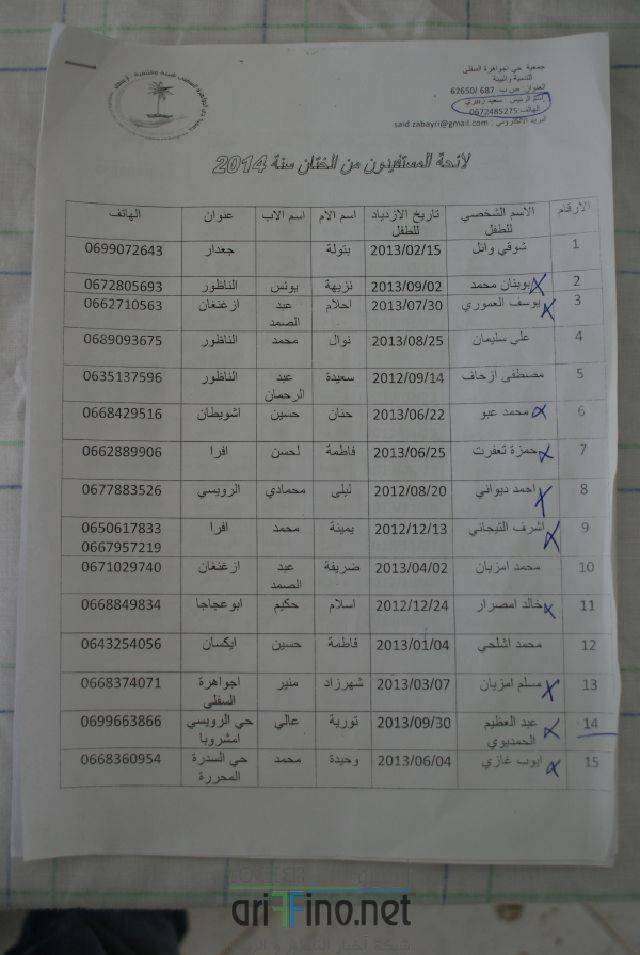 جمعية حي اجواهرة السفلى
للتنمية والبيئة
العنوان: ص ب 687 /62650
اسم الرئيس: سعيد زبيري
الهاتف: 0672485275
البريد الالكتروني: said.zabayri@gmail.com
لائحة المستفيدون من الختان سنة 2014
الارقام الاسم الشخصي للطفل تاريخ الازدياد للطفل اسم الام اسم الاب عنوان الهاتف
1 شوقي وائل 2013/02/15 بتولة جعدار 0699072643
2 بوبنان محمد 2013/09/02 نزيهة يونس الناظور 0672805693
3 يوسف العموري 2013/07/30 احلام عبد الصمد ازغنغان 0662710563
4 علي سليمان 2013/08/25 نوال محمد الناظور 0689093675
5 مصطفى ازحاف 2012/09/14 سعيدة عبد الرحمان الناظور 0635137596
6 محمد عبو 2013/06/22 حنان حسين اشويطان 0668429516
7 حمزة تعفرت 2013/06/25 فاطمة لحسن افرا 0662889906
8 احمد ديوافي 2012/08/20 ليلى محمادي الرويسي 0677883526
9 اشرف التيجاني 2012/12/13 يمينة محمد افرا 0650617833
0667957219
10 محمد امزيان 2013/04/02 ضريفة عبد الصمد ازغنغان 0671029740
11 خالد امصرار 2012/12/24 اسلام حكيم ابوعجاجا 0668849834
12 محمد اشلحي 2013/01/04 فاطمة حسين ايكسان 0643254056
13 مسلم امزيان 2013/03/07 شهرزاد منير اجواهرة السفلى 0668374071
14 عبد العظيم الحمديوي 2013/09/30 تورية عالي حي الرويسي امشروبا 0699663866
15 ايوب غازي 2013/06/04 وحيدة محمد حي السدرة المحررة 0668360954
ariFFino.net